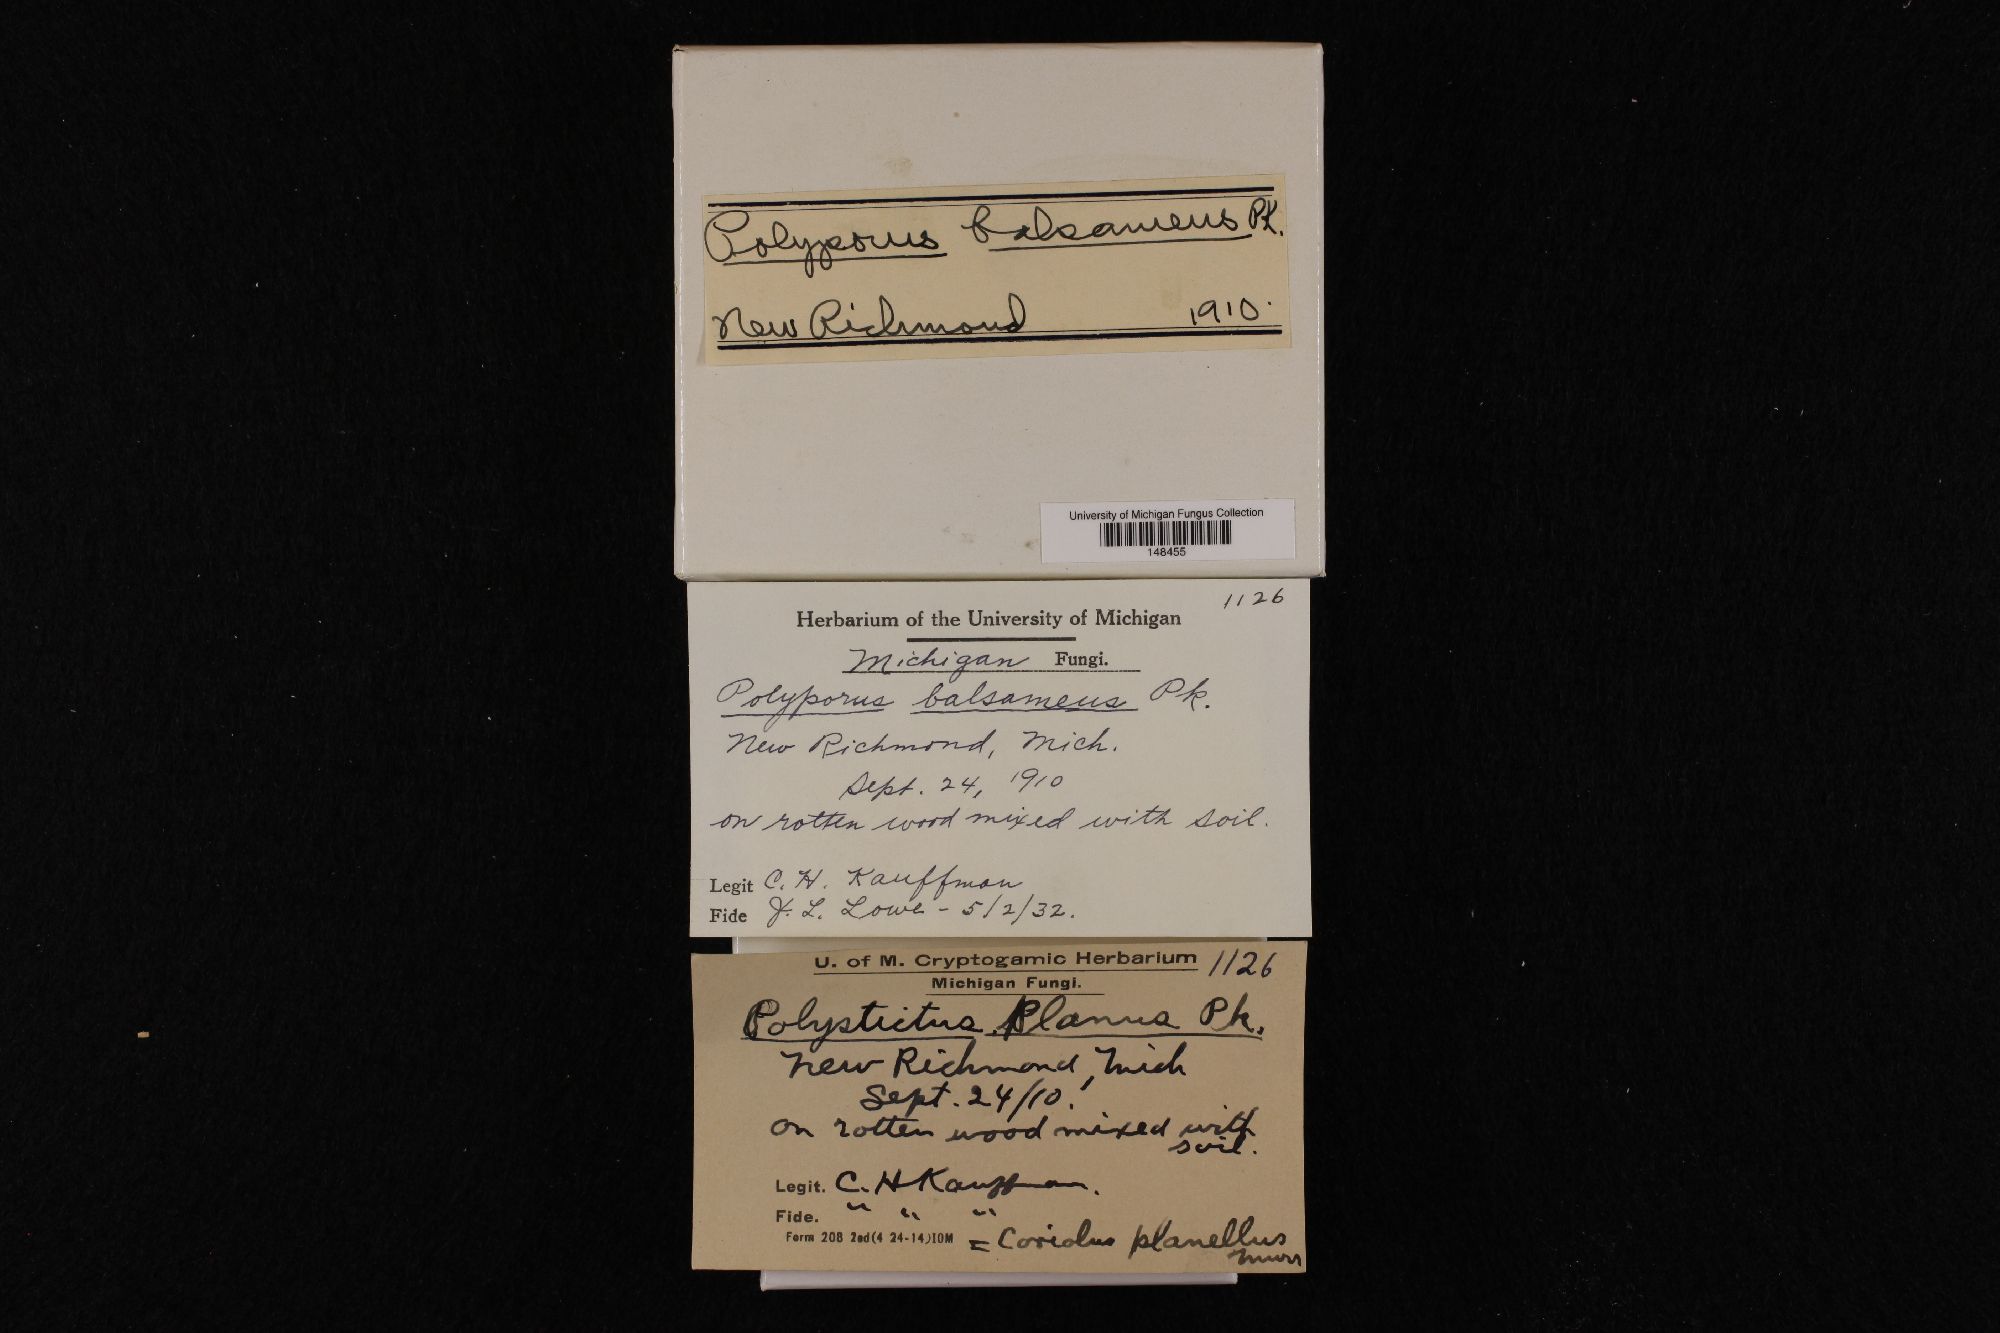 Polyporus balsameus Pk.
New Richmond 1910.
University of Michigan Fungus Collection
148455
1126
Herbarium of the University of Michigan
Michigan Fungi.
Polyporus balsameus Pk.
New Richmond, Mich.
Sept. 24, 1910
on rotten wood mixed with soil.
Legit C. H. Kauffman
Fide J. L. Lowe - 5/2/32.
U. of M. Cryptogamic Herbarium 1126
Michigan Fungi.
Polystictus Planus Pk.
New Richmond, Mich
Sept. 24/10!
on rotten wood mixed with
soil.
Legit. C. H Kauffman.
Fide. " " "
Form 208 2ed(4 24-14)10M = Coriolus planellus
Murr